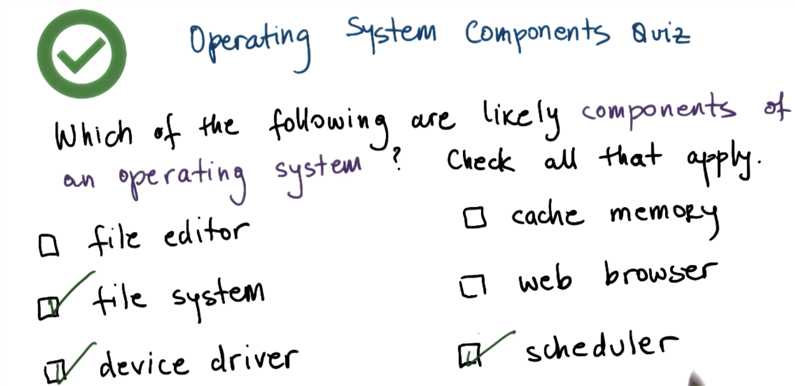 Operating System Components Quiz
Which of the following are likely components of
an operating system? Check all that apply.
file editor
file system
device driver
cache memory
web browser
scheduler